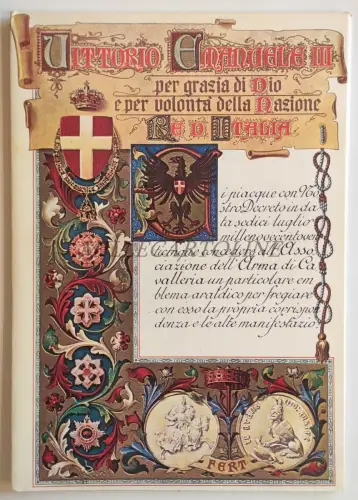 Vittorio Emanuele III
per grazia di Dio
e per volontà della Nazione
Re d'Italia
i piacque con No
stro Decreto in da
ta sedici luglio
millenovecentoven
ticinque concedere all'Asso
ciazione dell'Arma di Ca
valleria un particolare em
blema araldico per fregiare
con esso la propria corrispon
denza e le alte manifestazio
FERT